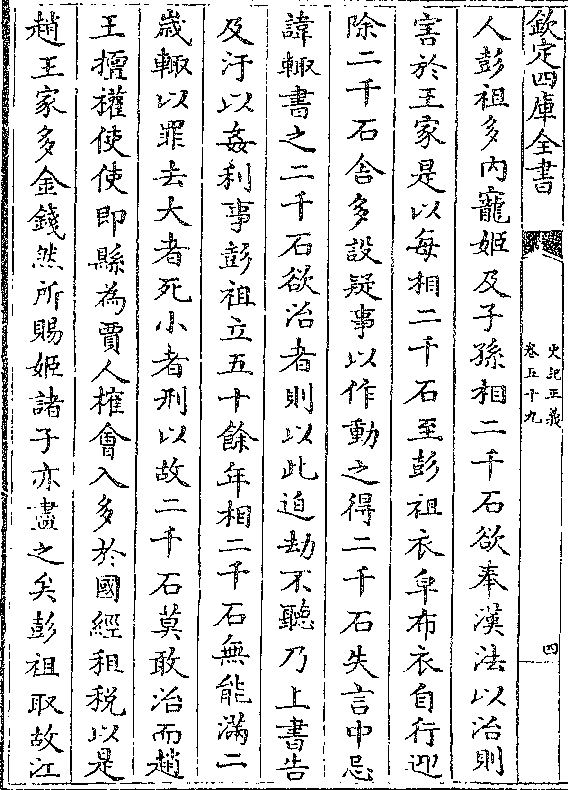 欽定四庫全書
史記正義
卷五十九
四
人彭祖多内寵姬及子孫相二千石欲奉漢法以治則
害於王家是以每相二千石至彭祖衣皁布衣自行迎
除二千石舍多設疑事以作動之得二千石失言中忌
諱輙書之二千石欲治者則以此迫劫不聽乃上書告
及汙以姦利事彭祖立五十餘年相二千石無能滿二
歲輙以罪去大者死小者刑以故二千石莫敢治而趙
王擅權使使即縣為賈人榷會入多於國經租税以是
趙王家多金錢然所賜姬諸子亦盡之矣彭祖取故江